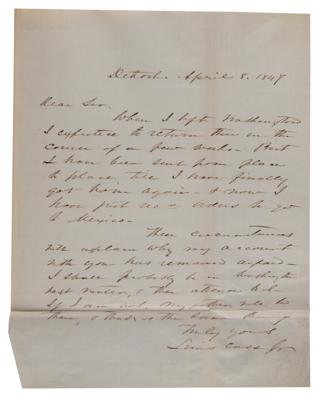 Detroit April 8. 1847
Dear Sir.
When I left Washington
I expected to return there in the
course of a few weeks. But
I have been sent from place
to place, till I have finally
got home again & now I
have just rec'd orders to go
to Mexico.
These circumstances
will explain why my account
with you has remained unpaid.
I shall probably be in Washington
next winter, & then attend to it.
If I am not, my father will be
there, & that is the same thing
Truly yours
Lewis Cass Jr